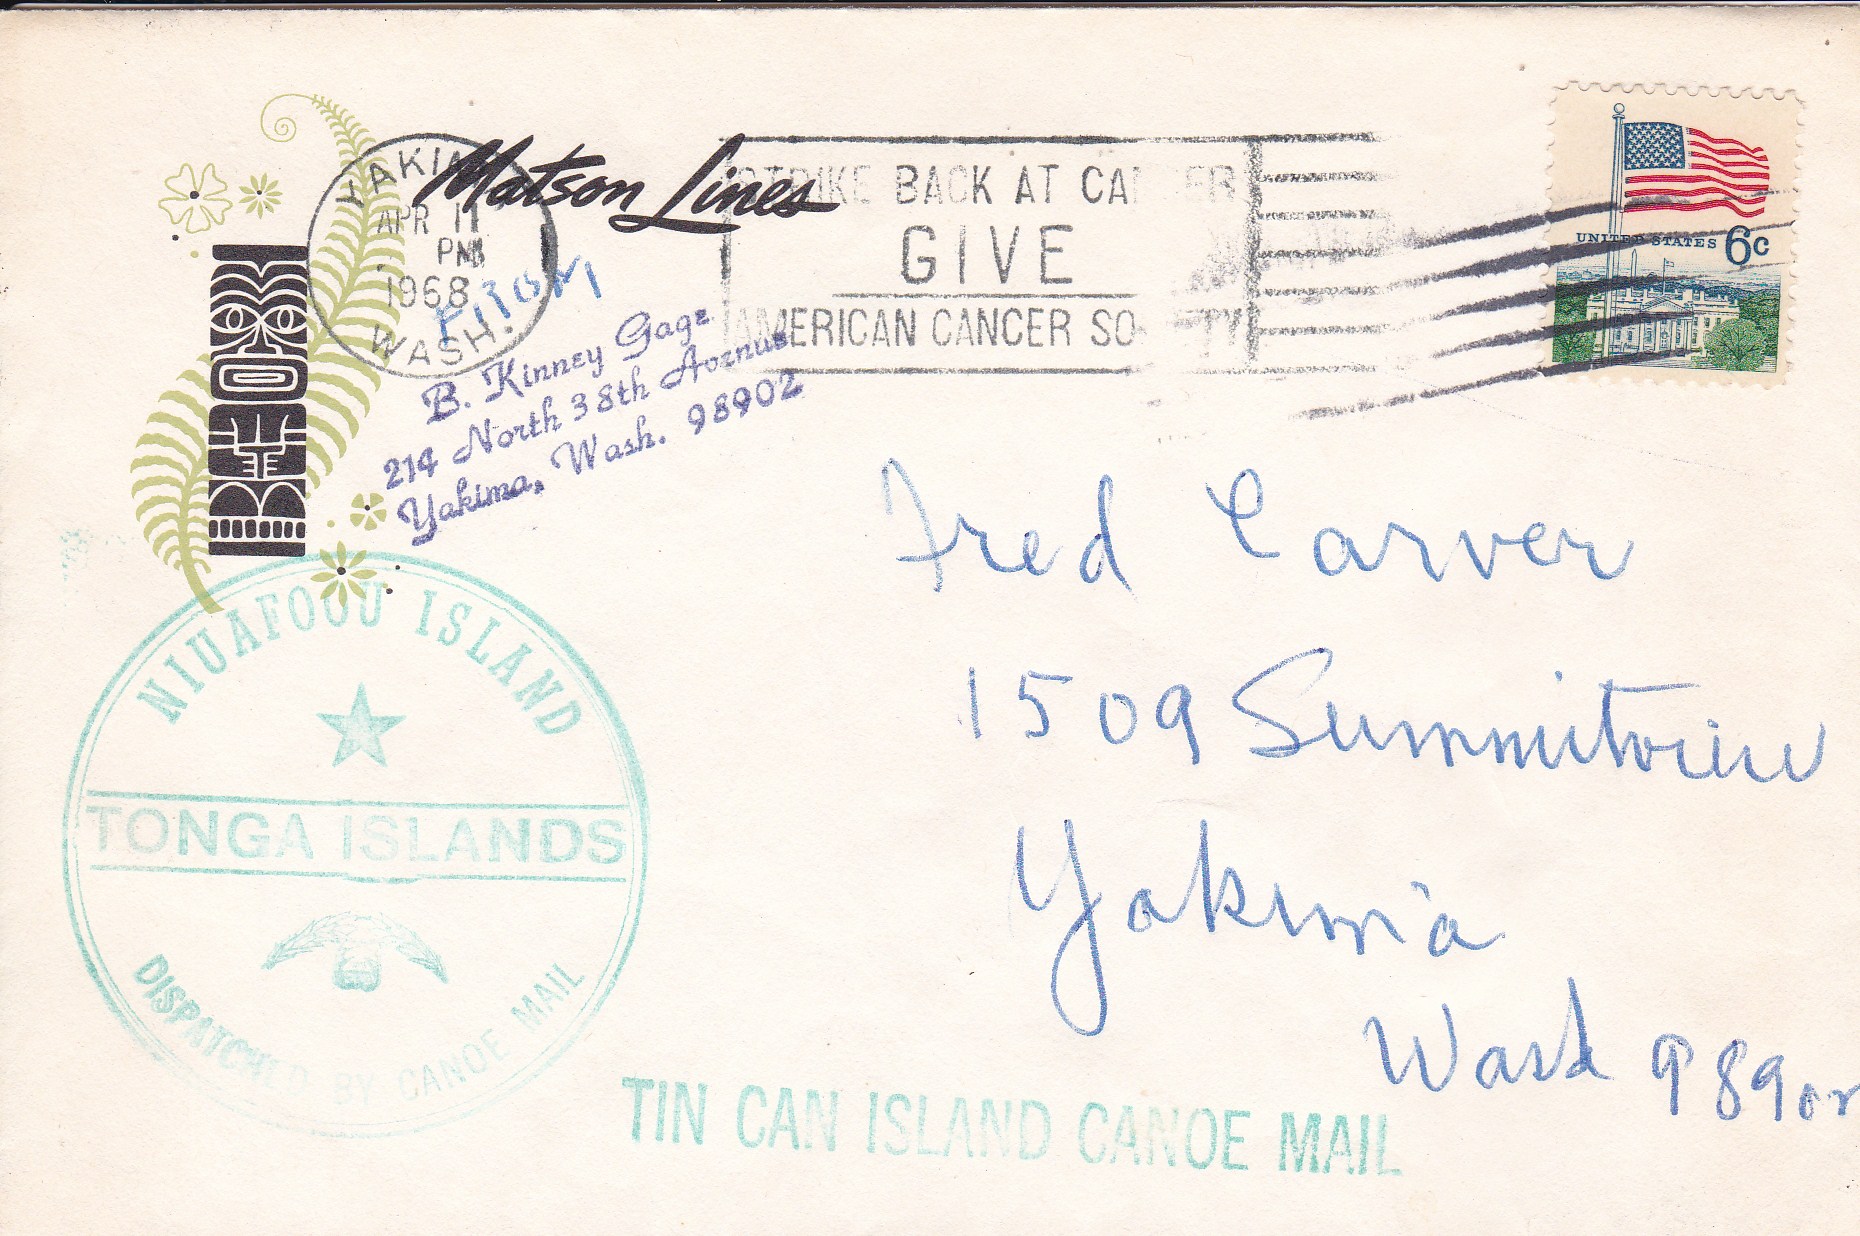 Matson Lines
YAKIMA
APR 11
PM
1968
WASH.
STRIKE BACK AT CANCER
GIVE
AMERICAN CANCER SOCIETY
UNITED STATES 6c
FROM
B. Kinney Gage
214 North 38th Avenue
Yakima, Wash. 98902
Fred Carver
1509 Summitview
Yakima
Wash 98902
NIUAFOOU ISLAND
TONGA ISLANDS
DISPATCHED BY CANOE MAIL
TIN CAN ISLAND CANOE MAIL